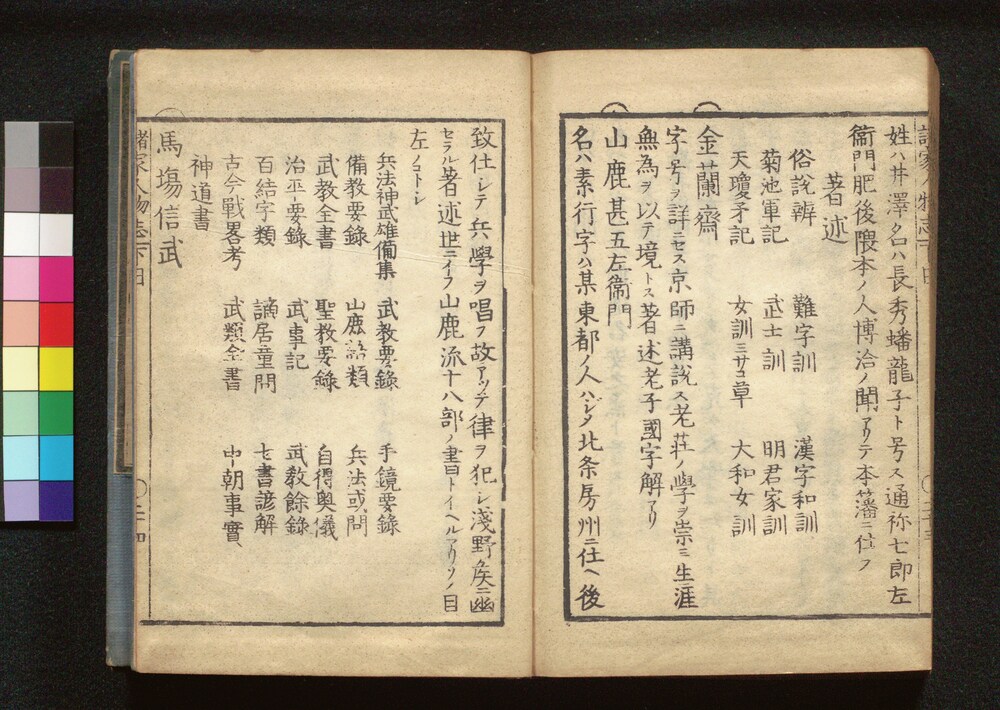 姓ハ井澤名ハ長秀蟠龍子ト号ス通祢七郎左
衞門肥後隈本ノ人博洽ノ聞アリテ本藩ニ仕フ
著述
俗説辨 難字訓 漢字和訓
菊池軍記 武士訓 明君家訓
天瓊矛記 女訓ミサコ草 大和女訓
金蘭齋
字号ヲ詳ニセス京師ニ講説ス老莊ノ學ヲ崇ミ生涯
無為ヲ以テ境トス著述老子國字解アリ
山鹿甚五左衞門
名ハ素行字ハ某東都ノ人ハジメ北条房州ニ仕ヘ後
致仕シテ兵學ヲ唱フ故アツテ律ヲ犯シ淺野矦ニ幽
セラル著述世ニイフ山鹿流十八部ノ書トイヘルアリソノ目
左ノコトシ
兵法神武雄備集 武教要錄 手鏡要錄
備教要錄 山鹿語類 兵法或問
武教全書 聖教要錄 自得奥儀
治平要錄 武事記 武教餘錄
百結字類 謫居童問 七書諺解
古今戰畧考 武類全書 中朝事實
神道書
馬塲信武
諸家人物志下